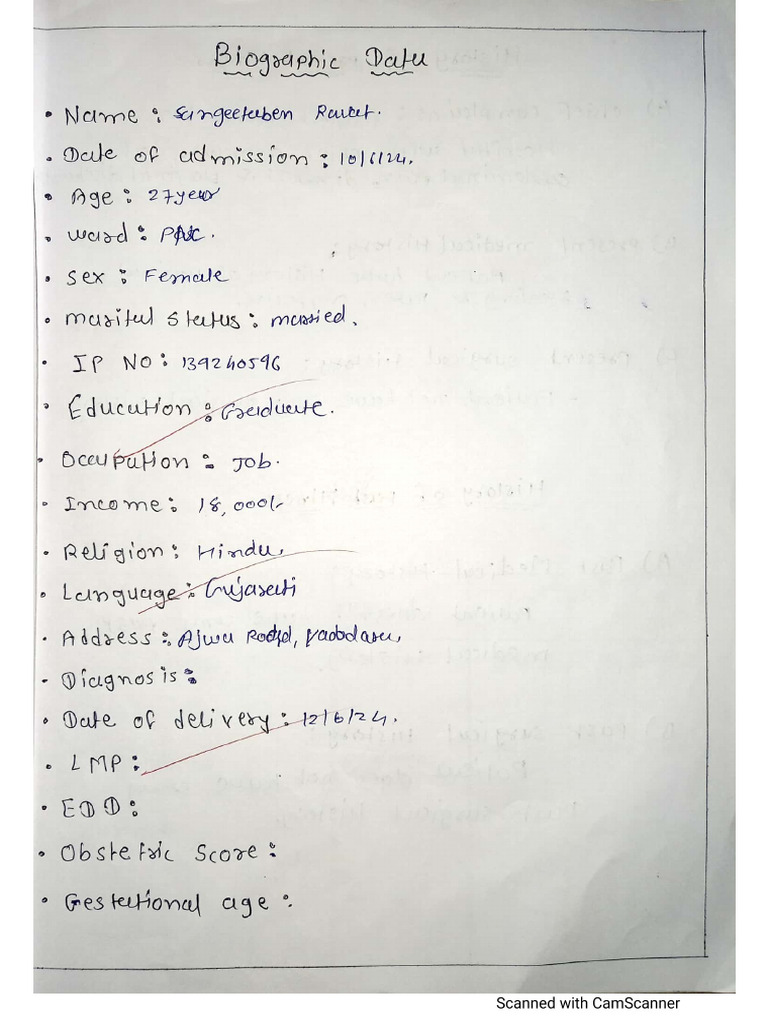 Biographic Data
• Name : Sangeetaben Raut.
• Date of admission : 10/6/24.
• Age : 27 year
• Ward : PNC.
• Sex : Female
• Marital Status : married.
• IP NO : 139240596
• Education : Graduate.
• Occupation : Job.
• Income : 18,000/-
• Religion : Hindu.
• Language : Gujarati
• Address : Ajwa Road, Vadodara.
• Diagnosis :
• Date of delivery : 12/6/24.
• LMP :
• EDD :
• Obstetric Score :
• Gestational age :
Scanned with CamScanner